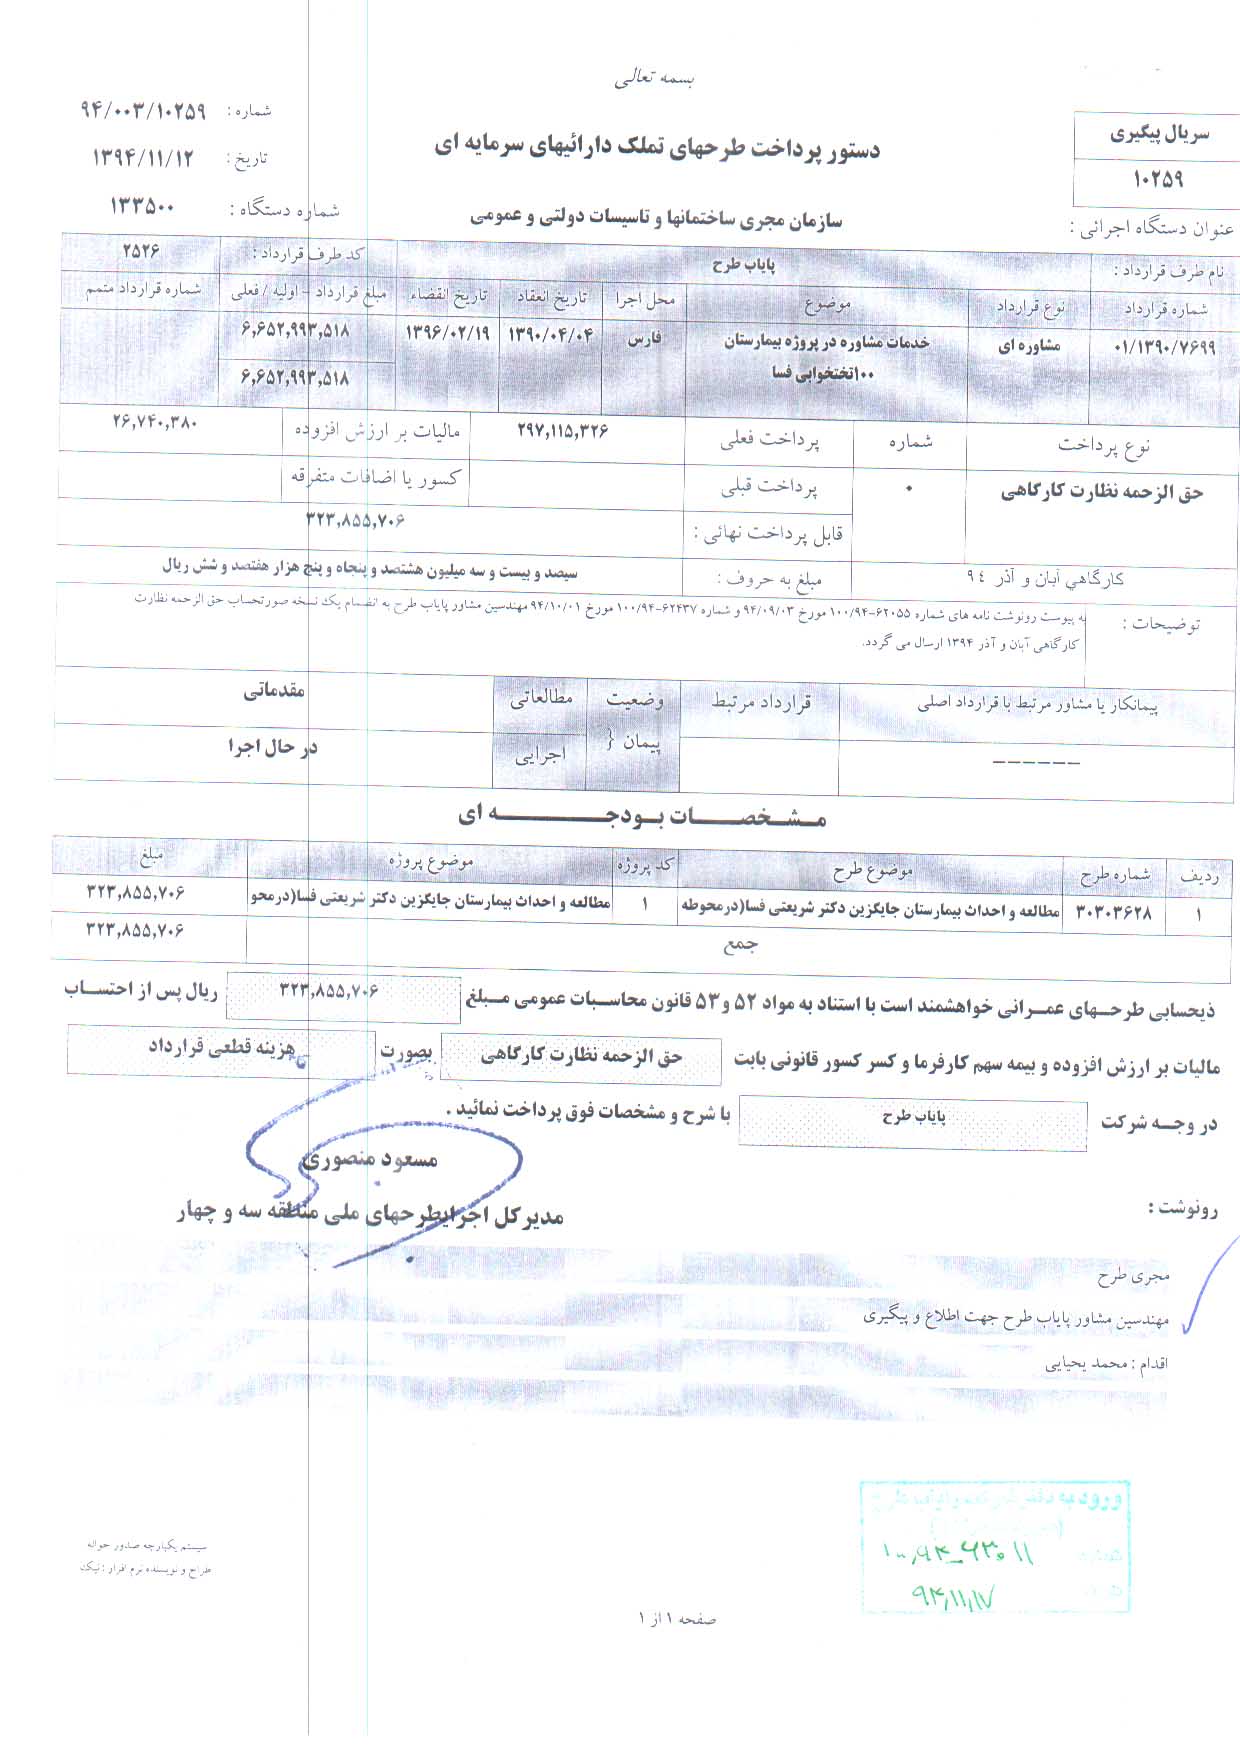 بسمه تعالی
سریال پیگیری
۱۰۲۵۹
دستور پرداخت طرحهای تملک دارائیهای سرمایه ای
شماره : ۹۴/۰۰۳/۱۰۲۵۹
تاریخ : ۱۳۹۴/۱۱/۱۲
شماره دستگاه : ۱۳۳۵۰۰
عنوان دستگاه اجرائی : سازمان مجری ساختمانها و تاسیسات دولتی و عمومی
نام طرف قرارداد : پایاب طرح کد طرف قرارداد : ۲۵۲۶
شماره قرارداد نوع قرارداد موضوع محل اجرا تاریخ انعقاد تاریخ انقضاء مبلغ قرارداد - اولیه / فعلی شماره قرارداد متمم
۰۱/۱۳۹۰/۷۶۹۹ مشاوره ای خدمات مشاوره در پروژه بیمارستان فارس ۱۳۹۰/۰۴/۰۴ ۱۳۹۶/۰۲/۱۹ ۶,۶۵۲,۹۹۳,۵۱۸
۱۰۰تختخوابی فسا ۶,۶۵۲,۹۹۳,۵۱۸
نوع پرداخت شماره پرداخت فعلی ۲۹۷,۱۱۵,۳۲۶ مالیات بر ارزش افزوده ۲۶,۷۴۰,۳۸۰
حق الزحمه نظارت کارگاهی ۰ پرداخت قبلی کسور یا اضافات متفرقه
قابل پرداخت نهائی : ۳۲۳,۸۵۵,۷۰۶
کارگاهي آبان و آذر ۹٤ مبلغ به حروف : سیصد و بیست و سه میلیون هشتصد و پنجاه و پنج هزار هفتصد و شش ریال
توضیحات : به پیوست رونوشت نامه های شماره ۶۲۰۵۵-۱۰۰/۹۴ مورخ ۹۴/۰۹/۰۳ و شماره ۶۲۴۳۷-۱۰۰/۹۴ مورخ ۹۴/۱۰/۰۱ مهندسین مشاور پایاب طرح به انضمام یک نسخه صورتحساب حق الزحمه نظارت
کارگاهی آبان و آذر ۱۳۹۴ ارسال می گردد.
پیمانکار یا مشاور مرتبط با قرارداد اصلی قرارداد مرتبط وضعیت پیمان { مطالعاتی مقدماتی
------ اجرایی در حال اجرا
مشخصات بودجه ای
ردیف شماره طرح موضوع طرح کد پروژه موضوع پروژه مبلغ
۱ ۳۰۳۰۳۶۲۸ مطالعه و احداث بیمارستان جایگزین دکتر شریعتی فسا(درمحوطه ۱ مطالعه و احداث بیمارستان جایگزین دکتر شریعتی فسا(درمحو ۳۲۳,۸۵۵,۷۰۶
جمع ۳۲۳,۸۵۵,۷۰۶
ذیحسابی طرحهای عمرانی خواهشمند است با استناد به مواد ۵۲ و ۵۳ قانون محاسبات عمومی مبلغ ۳۲۳,۸۵۵,۷۰۶ ریال پس از احتساب
مالیات بر ارزش افزوده و بیمه سهم کارفرما و کسر کسور قانونی بابت حق الزحمه نظارت کارگاهی بصورت هزینه قطعی قرارداد
در وجه شرکت پایاب طرح با شرح و مشخصات فوق پرداخت نمائید .
مسعود منصوری
مدیرکل اجرایطرحهای ملی منطقه سه و چهار
رونوشت :
مجری طرح
مهندسین مشاور پایاب طرح جهت اطلاع و پیگیری
اقدام : محمد یحیایی
ورود به دفتر
۹۴,۱۱,۱۷
سیستم یکپارچه صدور حواله
طراح و نویسنده نرم افزار : نیک
صفحه ۱ از ۱